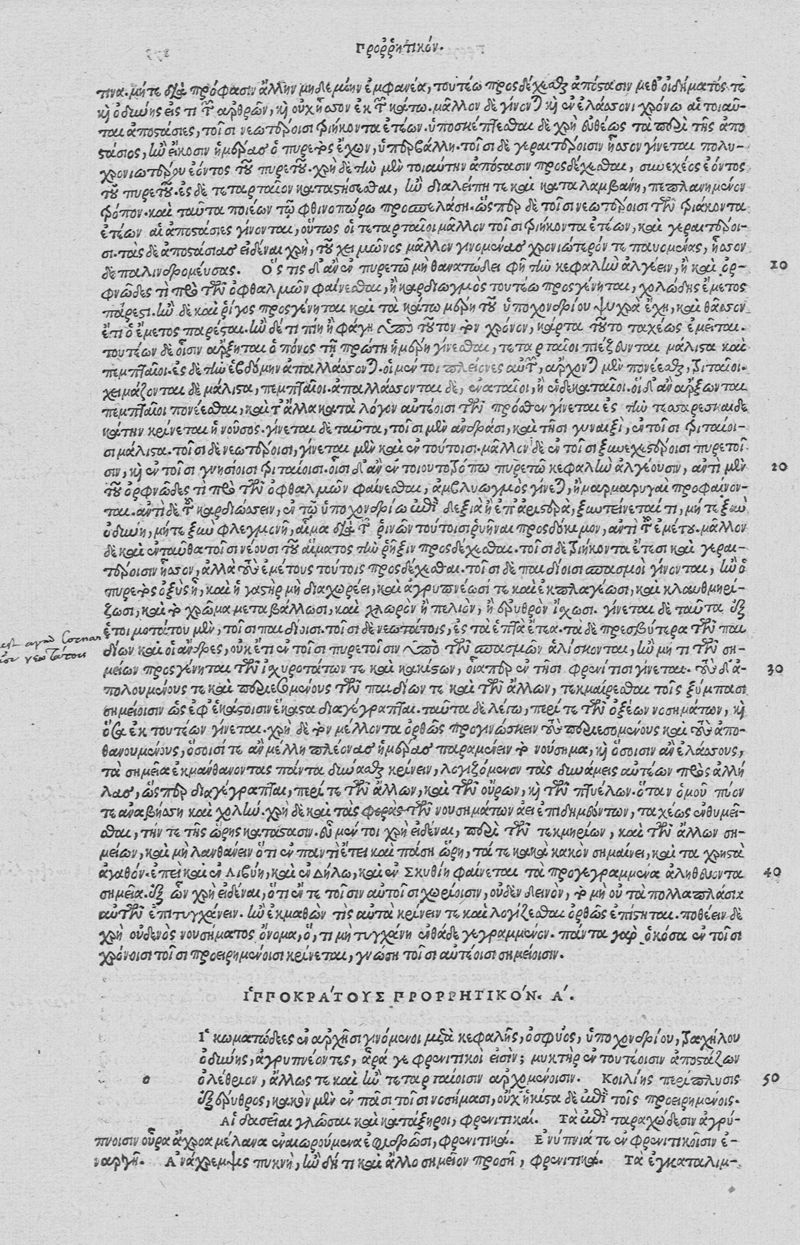 Προῤῥητικόν.
τινα. μήτε διὰ πρόφασιν ἄλλην μηδεμίην ἐμφανέα, τουτέῳ προσδέχεσθαι ἀπόστασιν μεθ' οἰδήματός τε
καὶ ὀδύνης εἴς τι τῶν ἄρθρων, καὶ οὐχ ἧσσον ἐκ τῶν κάτω. μᾶλλον δὲ γίνονται καὶ ἐν ἐλάσσονι χρόνῳ αἱ τοιαῦ-
ται ἀποστάσιες, τοῖσι νεωτέροισι τριήκοντα ἐτέων. ὑποσκέπτεσθαι δὲ χρὴ εὐθέως τὰ περὶ τῆς ἀπο
στάσιος, ἢν εἴκοσιν ἡμέρας ὁ πυρετὸς ἔχων, ὑπερβάλλῃ. τοῖσι δὲ γεραιτέροισιν ἧσσον γίνεται πολυ-
χρονιωτέρου ἐόντος τοῦ πυρετοῦ. χρὴ δὲ τὴν μὲν τοιαύτην ἀπόστασιν προσδέχεσθαι, συνεχέος ἐόντος
τοῦ πυρετοῦ. ἐς δὲ τεταρταῖον καταστήσεσθαι, ἢν διαλείπῃ τε καὶ καταλαμβάνῃ, πεπλανημένον
τρόπον. καὶ ταῦτα ποιέων τῷ φθινοπώρῳ προσπελάσῃ. ὥσπερ δὲ τοῖσι νεωτέροισι τῶν τριάκοντα
ἐτέων αἱ ἀποστάσιες γίνονται, οὕτως οἱ τεταρταῖοι μᾶλλον τοῖσι τριήκοντα ἐτέων, καὶ γεραιτέροι-
σι. τὰς δὲ ἀποστάσιας εἰδέναι χρὴ, τοῦ χειμῶνος μᾶλλον γινομένας χρονιώτερόν τε παυομένας, ἧσσον
δὲ παλινδρομεύσας. Ὅς τις δ' ἂν ἐν πυρετῷ μὴ θανατώδει φῇ τὴν κεφαλὴν ἀλγέειν, ἢ καὶ ὀρ- 10
φνῶδές τι πρὸ τῶν ὀφθαλμῶν φαίνεσθαι, ἢ καρδιωγμὸς τουτέῳ προσγένηται, χολώδης ἔμετος
πάρεστι. ἢν δὲ καὶ ῥῖγος προσγένηται καὶ τὰ κάτω μέρη τοῦ ὑποχονδρίου ψυχρὰ ἔχῃ, καὶ θᾶσσον
ἔτι ὁ ἔμετος παρέσται. ἢν δέ τι πίῃ ἢ φάγῃ ὑπὸ τοῦτον τὸν χρόνον, κάρτα τοῦτο ταχέως ἐμεῖται.
τουτέων δὲ οἷσιν ἄρξηται ὁ πόνος τῇ πρώτῃ ἡμέρῃ γίνεσθαι, τεταρταῖοι πιέζονται μάλιστα καὶ
πεμπταῖοι. ἐς δὲ τὴν ἑβδόμην ἀπαλλάσσονται. οἱ μέντοι πλείονες αὐτῶν, ἄρχονται μὲν πονέεσθαι, τριταῖοι.
χειμάζονται δὲ μάλιστα, πεμπταῖοι. ἀπαλλάσσονται δὲ, ἐναταῖοι, ἢ ἑνδεκαταῖοι. οἳ δ' ἂν ἄρξωνται
πεμπταῖοι πονέεσθαι, καὶ τἄλλα κατὰ λόγον αὐτέοισι τῶν πρόσθεν γίνεται ἐς τὴν τεσσαρεσκαιδε
κάτην κρίνεται ἡ νοῦσος. γίνεται δὲ ταῦτα, τοῖσι μὲν ἀνδράσι, καὶ τῇσι γυναιξὶ, ἐν τοῖσι τριταίοι-
σι μάλιστα. τοῖσι δὲ νεωτέροισι, γίνεται μὲν καὶ ἐν τούτοισι. μᾶλλον δὲ ἐν τοῖσι ξυνεχεστέροισι πυρετοῖ
σιν, καὶ ἐν τοῖσι γνησίοισι τριταίοισι. οἷσι δ' ἂν ἐν τοιουτοτρόπῳ πυρετῷ κεφαλὴν ἀλγέουσιν, ἀντὶ μὲν 20
τοῦ ὀρφνῶδές τι πρὸ τῶν ὀφθαλμῶν φαίνεσθαι, ἀμβλυωγμὸς γίνεται, ἢ μαρμαρυγαὶ προφαίνον-
ται. ἀντὶ δὲ τοῦ καρδιώσσειν, ἐν τῷ ὑποχονδρίῳ ἐπὶ δεξιὰ ἢ ἐπ' ἀριστερὰ, ξυντείνεταί τι, μήτε ξὺν
ὀδύνῃ, μήτε ξὺν φλεγμονῇ, αἷμα διὰ τῶν ῥινῶν τούτοισι ῥυῆναι προσδόκιμον, ἀντὶ τοῦ ἐμέτου. μᾶλλον
δὲ καὶ ἐνταῦθα τοῖσι νέοισι τοῦ αἵματος τὴν ῥῆξιν προσδέχεσθαι. τοῖσι δὲ τριήκοντα ἔτεσι καὶ γεραι-
τέροισιν ἧσσον, ἀλλὰ τοὺς ἐμέτους τούτοις προσδέχεσθαι. τοῖσι δὲ παιδίοισι σπασμοὶ γίνονται, ἢν ὁ
πυρετὸς ὀξὺς ᾖ, καὶ ἡ γαστὴρ μὴ διαχωρέει, καὶ ἀγρυπνέωσί τε καὶ ἐκπλαγέωσι, καὶ κλαυθμηρί-
ζωσι, καὶ τὸ χρῶμα μεταβάλλωσι, καὶ χλωρὸν ἢ πελιὸν, ἢ ἐρυθρὸν ἴσχωσι. γίνεται δὲ ταῦτα ἐξ
ἑτοιμοτάτου μὲν, τοῖσι παιδίοισι. τοῖσι δὲ νεωτάτοις, ἐς τὰ ἑπτὰ ἔτεα. τὰ δὲ πρεσβύτερα τῶν παι
δίων καὶ οἱ ἄνδρες, οὐκ ἔτι ἐν τοῖσι πυρετοῖσιν ὑπὸ τῶν σπασμῶν ἁλίσκονται, ἢν μή τι τῶν ση-
μείων προσγένηται τῶν ἰσχυροτάτων τε καὶ κακίστων, οἷάπερ ἐν τῇσι φρενίτισι γίνεται. τοὺς δ' ἀ- 30
πολουμένους τε καὶ περιεσομένους τῶν παιδίων τε καὶ τῶν ἄλλων, τεκμαίρεσθαι τοῖς ξύμπασι
σημείοισιν ὡς ἐφ' ἑκάστοισιν ἕκαστα διαγέγραπται. ταῦτα δὲ λέγω, περί τε τῶν ὀξέων νοσημάτων, καὶ
ὅσα ἐκ τουτέων γίνεται. χρὴ δὲ τὸν μέλλοντα ὀρθῶς προγινώσκειν τοὺς περιεσομένους καὶ τοὺς ἀπο-
θανουμένους, ὁσοισί τε ἂν μέλλῃ πλέονας ἡμέρας παραμένειν τὸ νούσημα, καὶ ὁσοισιν ἂν ἐλάσσους,
τὰ σημεῖα ἐκμανθάνοντας πάντα δύνασθαι κρίνειν, λογιζόμενον τὰς δυνάμεις αὐτέων πρὸς ἀλλή
λας, ὥσπερ διαγέγραπται, περί τε τῶν ἄλλων, καὶ τῶν οὔρων, καὶ τῶν πτυέλων. ὅταν ὁμοῦ πύον
τε ἀναβήσσῃ καὶ χολήν. χρὴ δὲ καὶ τὰς φορὰς τῶν νουσημάτων ἀεὶ ἐπιδημεόντων, ταχέως ἐνθυμεῖ-
σθαι, τήν τε τῆς ὥρης κατάστασιν. εὖ μέντοι χρὴ εἰδέναι, περὶ τῶν τεκμηρίων, καὶ τῶν ἄλλων ση-
μείων, καὶ μὴ λανθάνειν ὅτι ἐν παντὶ ἔτει καὶ πάσῃ ὥρῃ, τά τε κακὰ κακὸν σημαίνει, καὶ τὰ χρηστὰ
ἀγαθόν. ἐπεὶ καὶ ἐν Λιβύῃ, καὶ ἐν Δήλῳ, καὶ ἐν Σκυθίῃ φαίνεται τὰ προγεγραμμένα ἀληθεύοντα 40
σημεῖα. ἐξ ὧν χρὴ εἰδέναι, ὅτι ἔν τε τοῖσιν αὐτοῖσι χωρίοισιν, οὐδὲν δεινὸν, τὸ μὴ οὐ τὰ πολλαπλάσια
αὐτῶν ἐπιτυγχάνειν. ἢν ἐκμαθών τις αὐτὰ κρίνειν τε καὶ λογίζεσθαι ὀρθῶς ἐπίστηται. ποθέειν δὲ
χρὴ οὐδενὸς νουσήματος ὄνομα, ὅ, τι μὴ τυγχάνῃ ἐνθάδε γεγραμμένον. πάντα γὰρ ὁκόσα ἐν τοῖσι
χρόνοισι τοῖσι προειρημένοισι κρίνεται, γνώσῃ τοῖσι αὐτέοισι σημείοισιν.
ἹΠΠΟΚΡΑ´ΤΟΥΣ ΠΡΟΡΡΗΤΙΚΟ´Ν. Α´.
Ἱ κωματώδεες ἐν ἀρχῇσι γινόμενοι μετὰ κεφαλῆς, ὀσφύος, ὑποχονδρίου, τραχήλου
ὀδύνης, ἀγρυπνέοντες, ἆρά γε φρενιτικοί εἰσιν; μυκτὴρ ἐν τουτέοισιν ἀποστάζων
ο ὀλέθριον, ἄλλως τε καὶ ἢν τεταρταίοισιν ἀρχομένοισιν. Κοιλίης περίπλυσις 50
ἐξέρυθρος, κακὸν μὲν ἐν πᾶσι τοῖσι νοσήμασι, οὐχ ἥκιστα δὲ ἐπὶ τοῖς προειρημένοις.
Αἱ δασεῖαι γλῶσσαι καὶ κατάξηροι, φρενιτικαί. Τὰ ἐπὶ ταραχώδεσιν ἀγρύ-
πνοισιν οὖρα ἄχροα μέλανα ἐναιωρούμενα ἐφιδρῶσι, φρενιτικά. Ἐνύπνιά τε ἐν φρενιτικοῖσιν ἐ-
ναργῆ. Ἀνάχρεμψις πυκνὴ, ἢν δή τι καὶ ἄλλο σημεῖον προσῇ, φρενιτικά. Τὰ ἐγκαταλιμ-